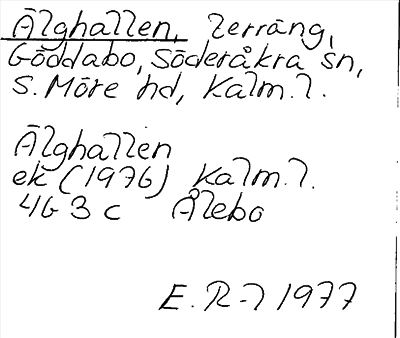 Älghallen, terräng,
Göddabo, Söderåkra sn,
S. Möre hd, Kalm. l.
Älghallen
ek (1976) Kalm. l.
4G 3 c Ålebo
E. R-l 1977